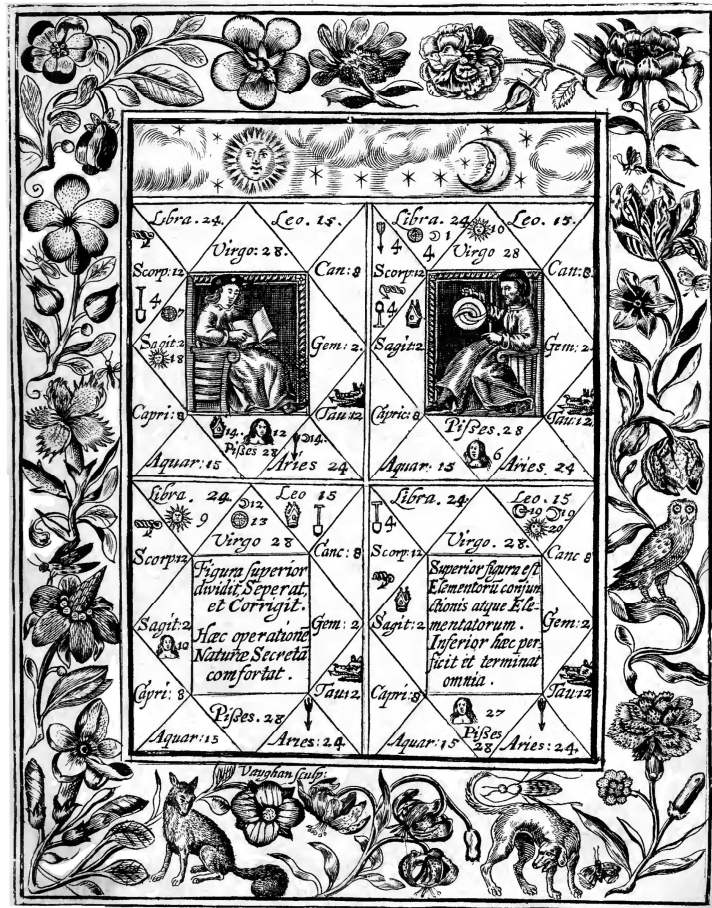 Libra. 24. Leo. 15.
Virgo: 28.
Scorp: 12 Can: 8
4
7
Sagit: 2 Gem: 2.
18
Capri: 8 Tau: 12
14. 12 14.
Pißes 28
Aquar: 15 Aries 24
Libra. 24 Leo. 15.
4 4 1 10
Virgo 28
Scorp: 12 Can: 8.
4
Sagit: 2 Gem: 2
Capric: 8 Tau: 12
Pißes. 28
6
Aquar: 15 Aries. 24
Libra. 24. Leo 15
9 12
13
Virgo 28
Scorp: 12 Canc: 8
Figura superior
dividit, Seperat,
et Corrigit.
Hæc operationē
Naturæ Secretā
comfortat.
Sagit: 2 Gem: 2
10
Capri: 8 Tau: 12
Pißes. 28
Aquar: 15 Aries: 24
Libra. 24. Leo. 15
4 19 19
20
Virgo. 28.
Scorp: 12 Canc 8
Superior figura est
Elementorū conjun
ctionis atque Ele-
mentatorum.
Inferior hæc per-
ficit et terminat
omnia.
Sagit: 2 Gem: 2
Capri: 8 Tau: 12
27
Pißes
28
Aquar: 15 Aries: 24.
Vaughan sculp: